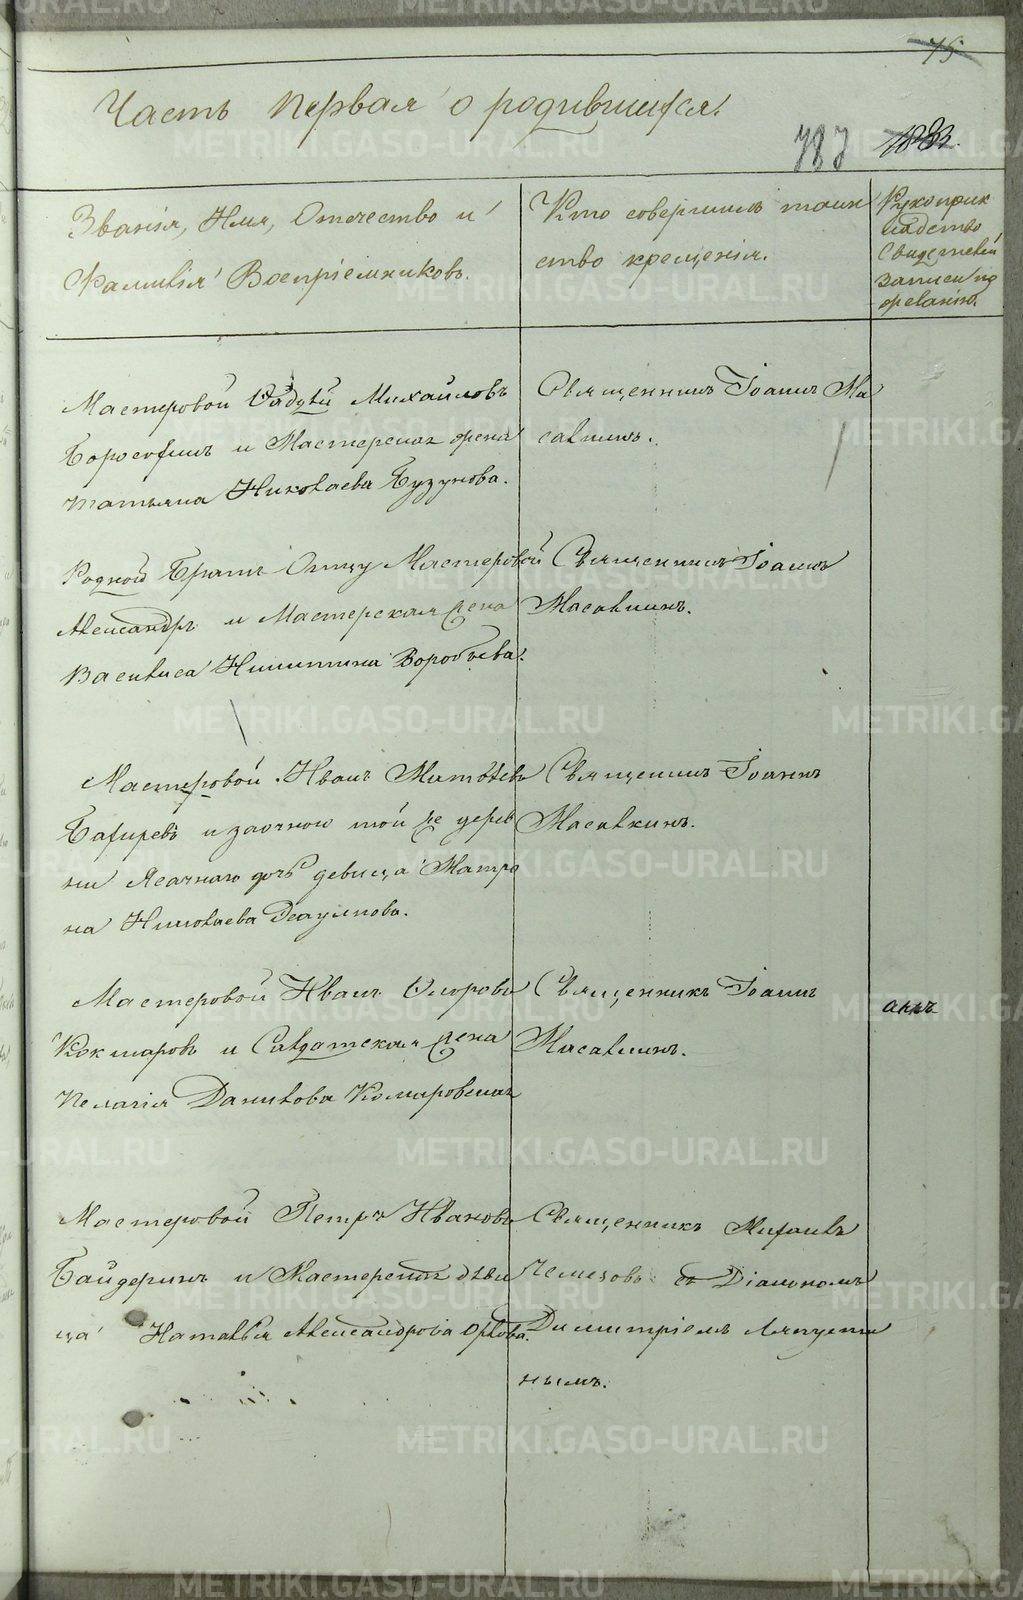 75
Часть первая о родившихся.
787
Званія, Имя, Отчество и
Фамилія Воспріемниковъ.
Кто совершилъ таин
ство крещенія.
Рукоприк
ладство
Свидетелей
записи по
желанію.
Мастеровой Михайловъ
и Мастерская жена
татьяна Николаева Бузунова.
Священникъ Іоаннъ Ма
савкинъ.
Родной Братъ Отцу Мастеровой
Александръ и Мастерская жена
Василиса Никитина Воробьева.
Священникъ Іоаннъ
Масавкинъ.
Мастеровой Иванъ Матвѣевъ
и заочною той же дерев
ни Ясачнаго дочь девица Матре
на Николаева
Священникъ Іоаннъ
Масавкинъ.
Мастеровой Иванъ
и Салдатская жена
Пелагія Данилова
Священникъ Іоаннъ
Масавкинъ.
Мастеровой Петръ Ивановъ
Байдеринъ и Мастерская дѣви
ца Наталья Александрова Орлова.
Священникъ Михаилъ
Чемезовъ съ Діакономъ
Димитріемъ Ляпусти
нымъ.
METRIKI.GASO-URAL.RU